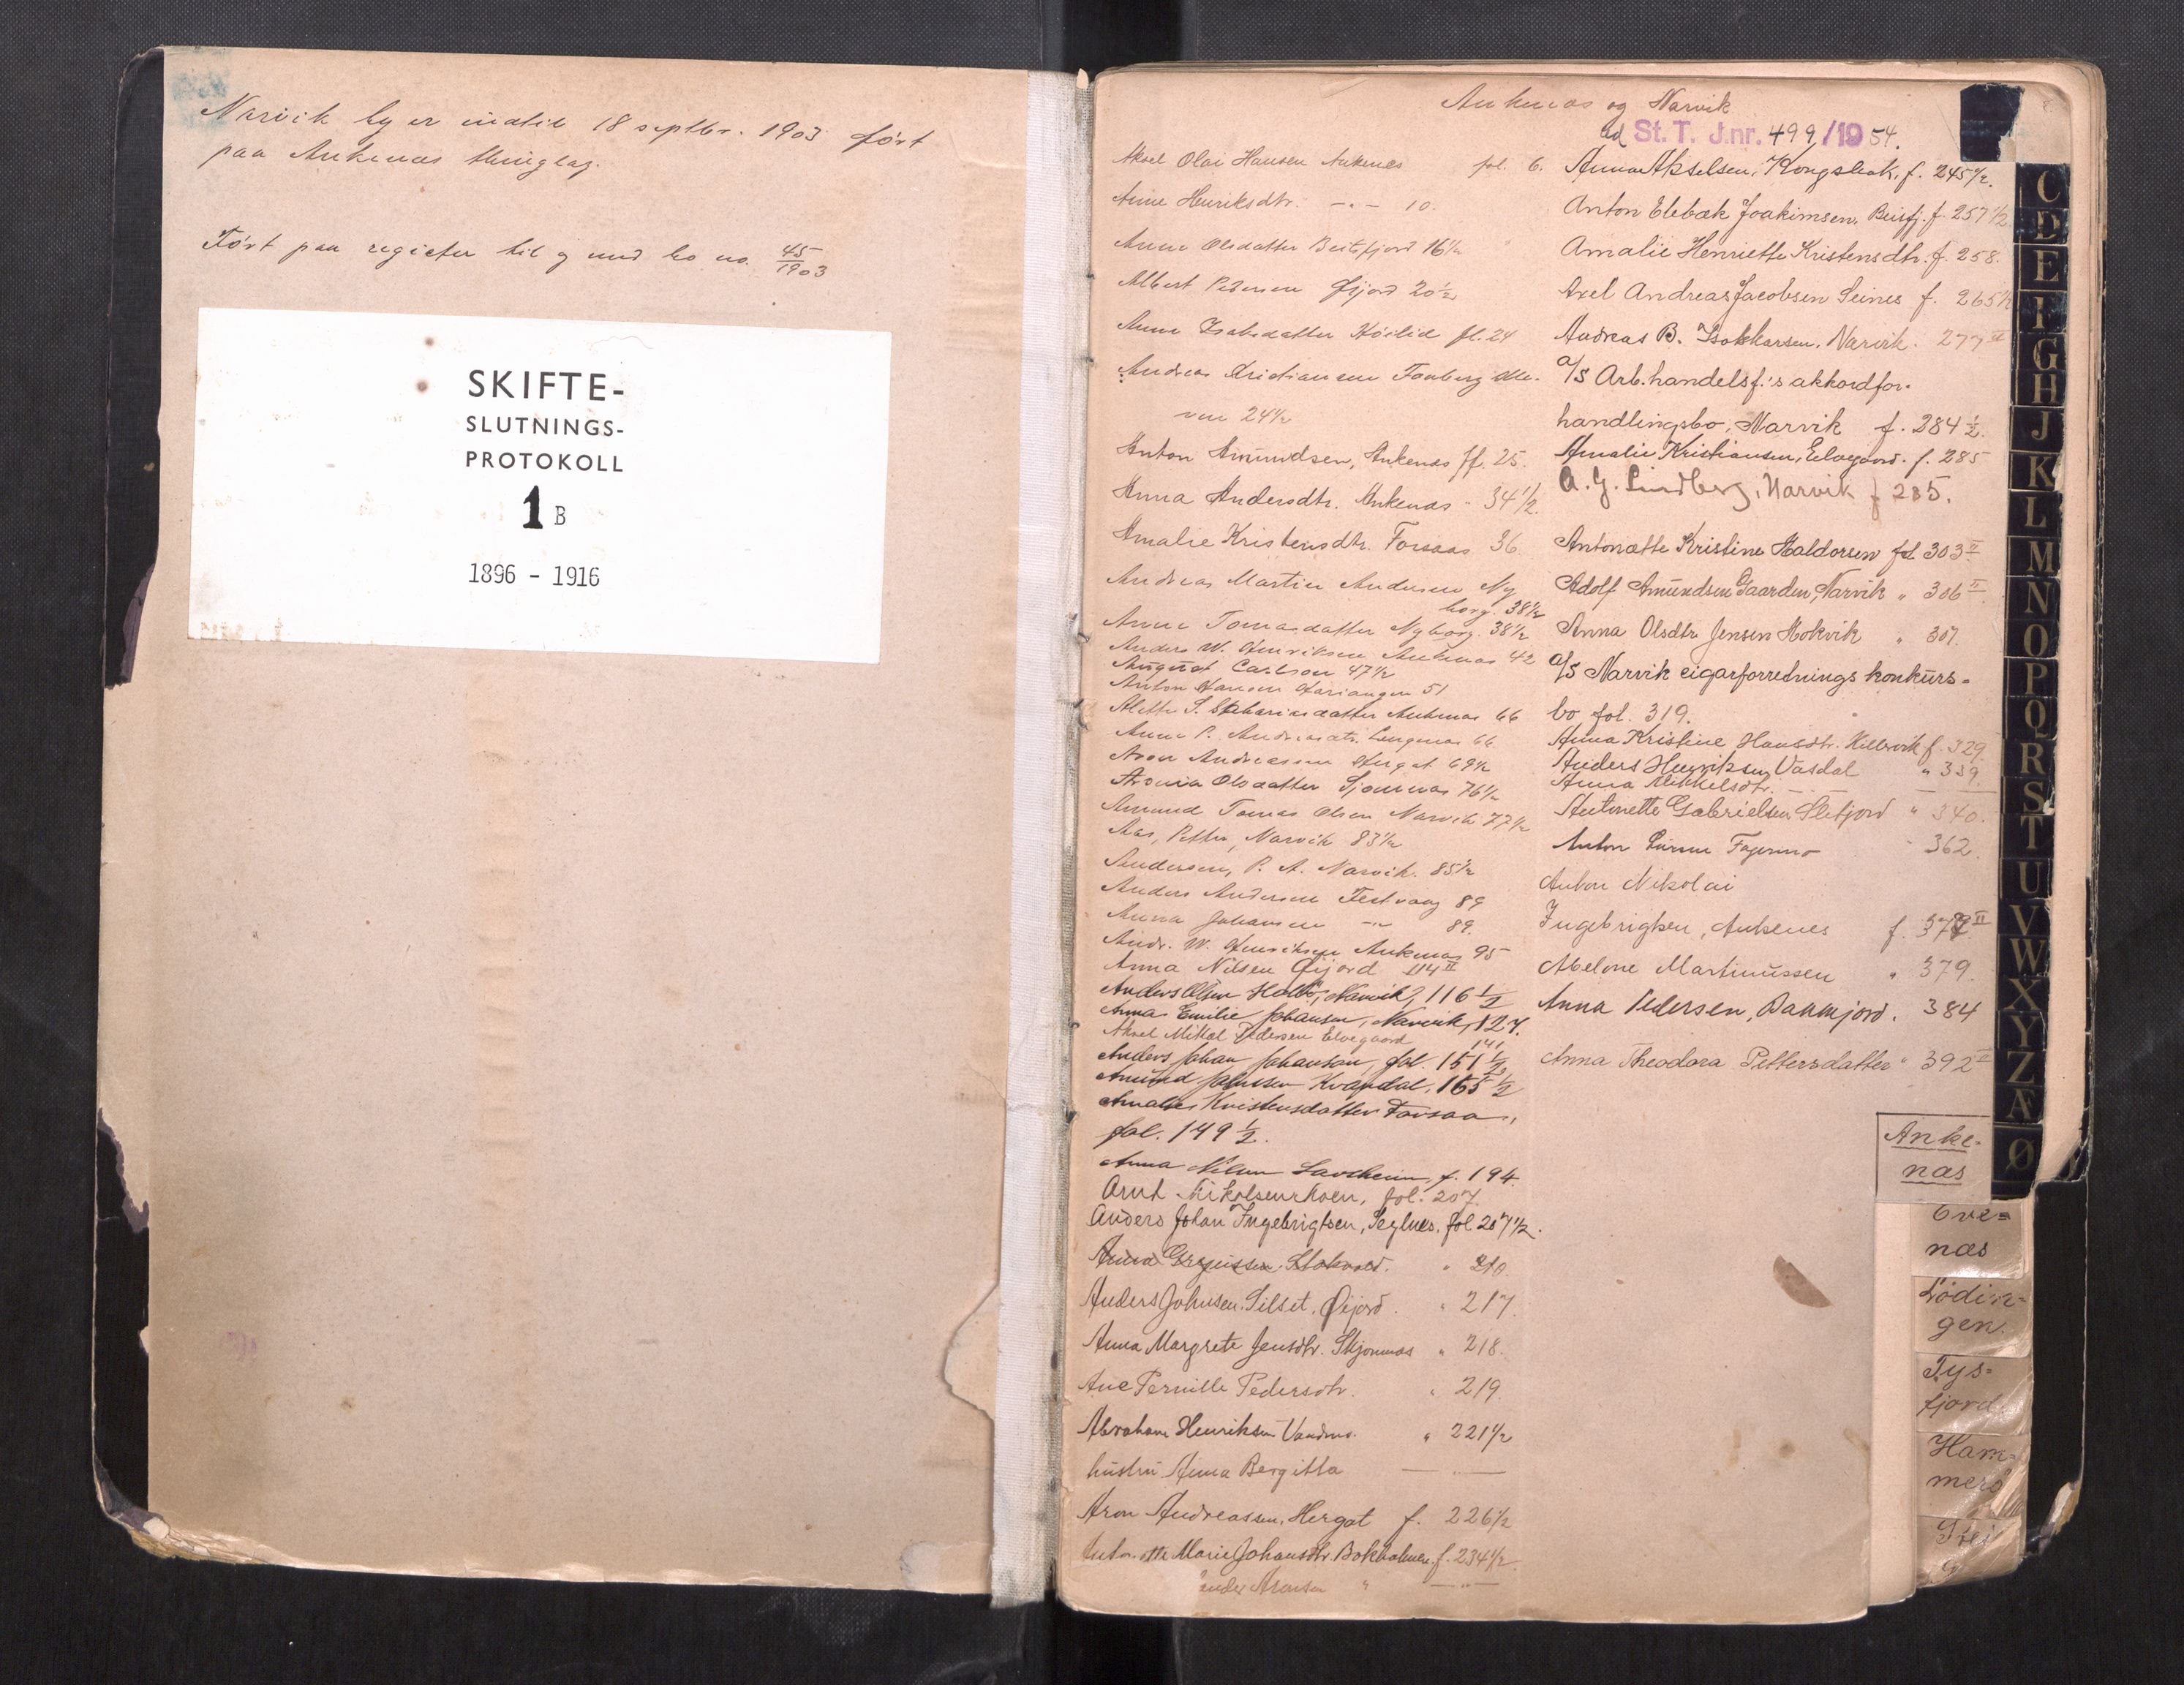 Narvik by er indtil 18 septbr. 1903 ført
paa Ankenæs thinglag.
Ført paa register til og med bo no. 45/1903
SKIFTE-
SLUTNINGS-
PROTOKOLL
1 B
1896 - 1916
Ankenæs og Narvik
ad St. T. J.nr. 499/1954.
Aksel Olai Hansen Ankenes fol. 6.
Anne Henriksdtr. -"- 10.
Anne Olsdatter Beitsfjord 16 1/2
Albert Pedersen Øijord 20 1/2
Anne Isaksdatter fl. 24
Andreas Kristiansen
24 1/2
Anton Amundsen, Ankenæs ff. 25.
Anna Andersdtr. Ankenæs " 34 1/2.
Amalie Kristensdtr. Forsaa 36
Andreas Martin Andersen Ny
borg. 38 1/2
Anne Tomasdatter Nyborg. 38 1/2
Anders W. Henriksen Ankenæs 42
August Carlson 47 1/2
Anton Hansen 51
Alette S. Ankenæs 66
Anne P. Andreasdtr. 66
Aron Andreassen Hergot 69 1/2
Olsdatter Skjomnæs 76 1/2
Amund Tomas Olsen Narvik 77 1/2
Aas, Petter, Narvik 83 1/2
Andersen, P. A. Narvik. 85 1/2
Anders Andersen Festvaag 89
Anna Johansen -"- 89.
Andr. W. Henriksen Ankenæs 95
Anna Nilsen Øijord 114 II
Anders Olsen Narvik, 116 1/2
Anna Emilie Johansen, Narvik, 127.
Aksel Mikal Pedersen Elvegaard 141
Anders Johan Johanson, fol. 151 1/2
Amund Johnsen Kvandal, 165 1/2
Amalie Kristensdatter Forsaa,
fol. 149 1/2.
Anna Nilsen f. 194.
Arnt Mikalsen fol. 207.
Anders Johan Ingebrigtsen, Seglnes. fol 207 1/2.
Anna " 210.
Anders Johnsen Silset. Øijord. " 217.
Anna Margrete Jensdtr. Skjomnæs " 218.
Ane Pernille Pedersdtr. " 219.
Abraham Henriksen " 221 1/2
hustru Anna Bergitta — " —
Aron Andreassen, Hergot f. 226 1/2
Marie Johansdtr. Bokholmen. f. 234 1/2
" — " —
Anna Akselsen, Kongsbak, f. 245 1/2.
Anton Elebæk Joakimsen, Beisfj. f. 257 1/2
Amalie Henriette Kristensdtr. f. 258.
Axel Andreas Jacobsen Seines f. 265 1/2
Andreas B. Isakkarsen, Narvik. 277 II
A/S Arb. handelsf.'s akkordfor-
handlingsbo, Narvik f. 284 1/2.
Amalie Kristiansen, Elvegaard. f. 285
A. G. Lindberg, Narvik f 285.
Antonætte Kristine Haldorsen fol 303 II
Adolf Amundsen Gaarden, Narvik " 306 II
Anna Olsdtr. Jensen Hokvik " 307.
A/S Narvik cigarforretnings konkurs-
bo fol. 319.
Anna Kristine Hansdtr. Hillevik f. 329.
Anders Henriksen Vasdal " 339.
Anna Mikkelsdtr. — " —
Antonette Gabrielsen Slefjord " 340.
Anton Fagermo " 362.
Anton Nikolai
Ingebrigtsen, Ankenes f. II
Abelone Martinussen " 379.
Anna Pedersen, 384
Anna Theodora Pettersdatter " 392 II
C
D
E
F
G
H
J
K
L
M
N
O
P
Q
R
S
T
U
V
W
X
Y
Z
Æ
Ø
Anke-
næs
Eve-
næs
Lødin-
gen.
Tys-
fjord
Ham-
merø